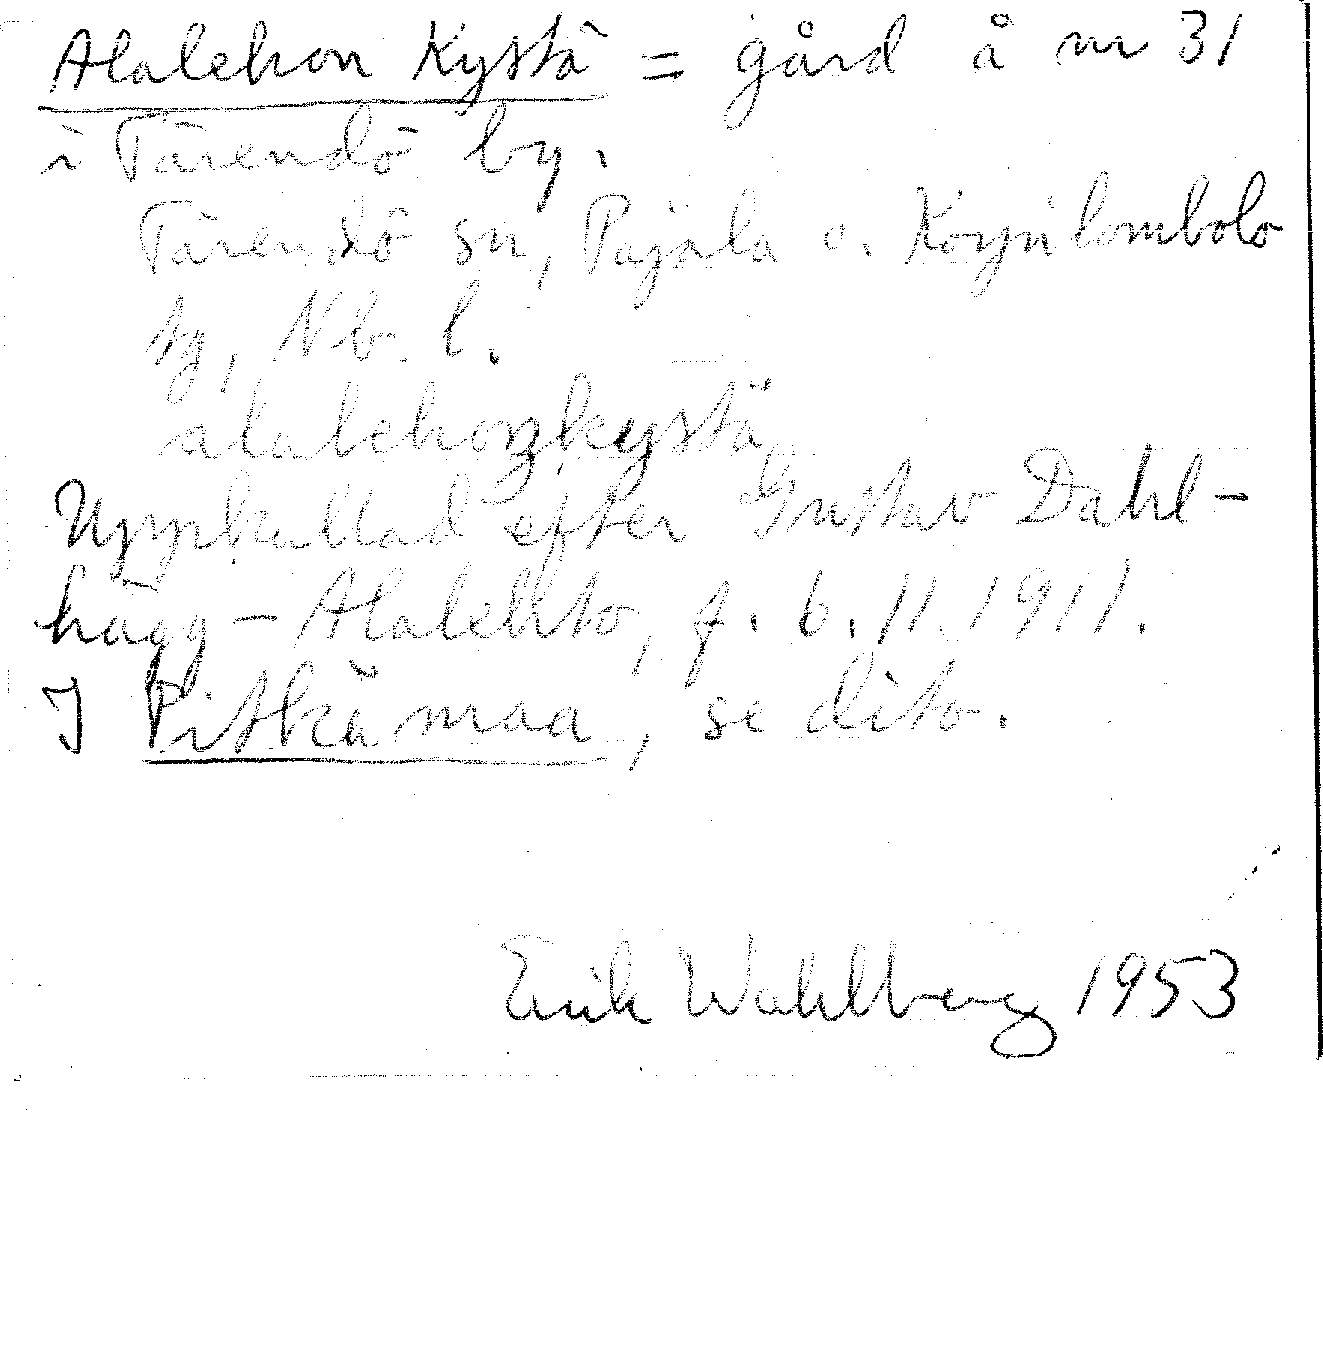 Alalehon Kystä = gård å nr 31
i Tärendö by.
Tärendö sn, Pajala o. Korpilombolo
tg, Nb. l.
alalehoŋkystä
Uppkallad efter Gustav Dahl-
hägg - Alalehto, f. 6.11.1911.
I Pitkämaa, se dito.
Erik Wahlberg 1953